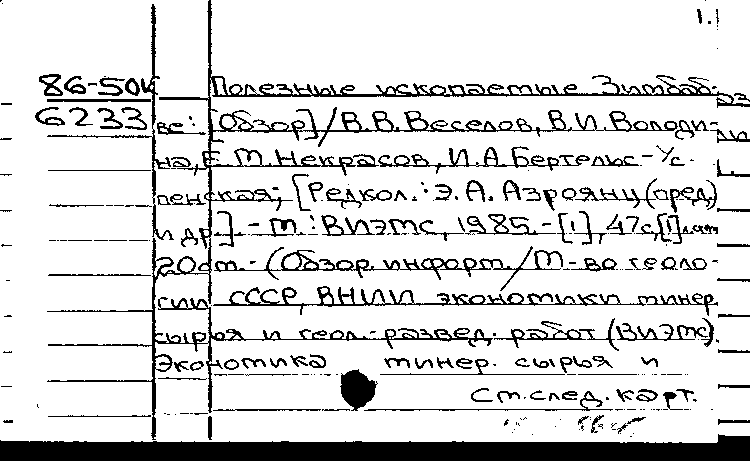 1.
86-50к Полезные ископаемые Зимбаб-
6233 ве: [Обзор] / В.В. Веселов, В.И. Володи-
на, Е.М. Некрасов, И.А. Бертельс-Ус-
пенская; [Редкол.: Э.А. Азроянц (пред.)
и др.]. - М.: ВИЭМС, 1985. - [1], 47 с., [1] л.
20 см. - (Обзор. информ. / М-во геоло-
гии СССР, ВНИИ экономики минер.
сырья и геол.-развед. работ (ВИЭМС).
Экономика минер. сырья и
См. след. карт.